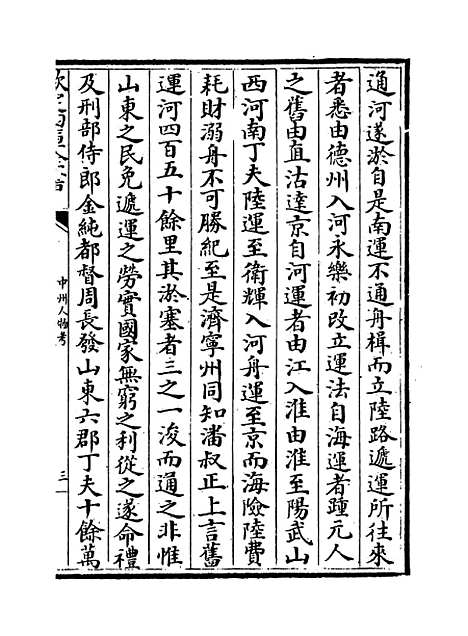 通河遂淤自是南運不通舟楫而立陸路遞運所往來
者悉由德州入河永樂初改立運法自海運者踵元人
之舊由直沽達京自河運者由江入淮由淮至陽武山
西河南丁夫陸運至衛輝入河舟運至京而海險陸費
耗財溺舟不可勝紀至是濟寧州同知潘叔正上言舊
運河四百五十餘里其淤塞者三之一浚而通之非惟
山東之民免遞運之勞實國家無窮之利從之遂命禮
及刑部侍郎金純都督周長發山東六郡丁夫十餘萬
中州人物考
三